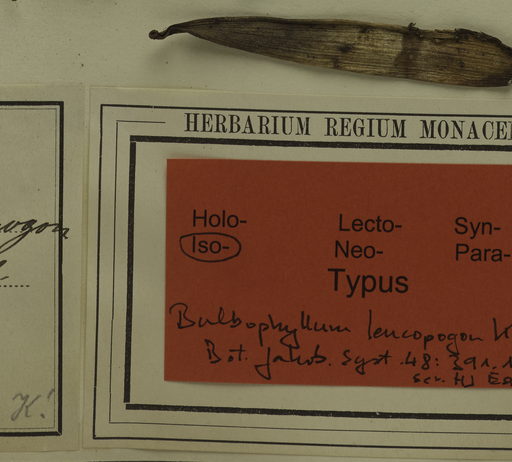 HERBARIUM REGIUM MONACE
Holo- Lecto- Syn-
Iso- Neo- Para-
Typus
Bulbophyllum leucopogon K
Bot. Jahrb. Syst. 48: 391.
scr. HJ
K!